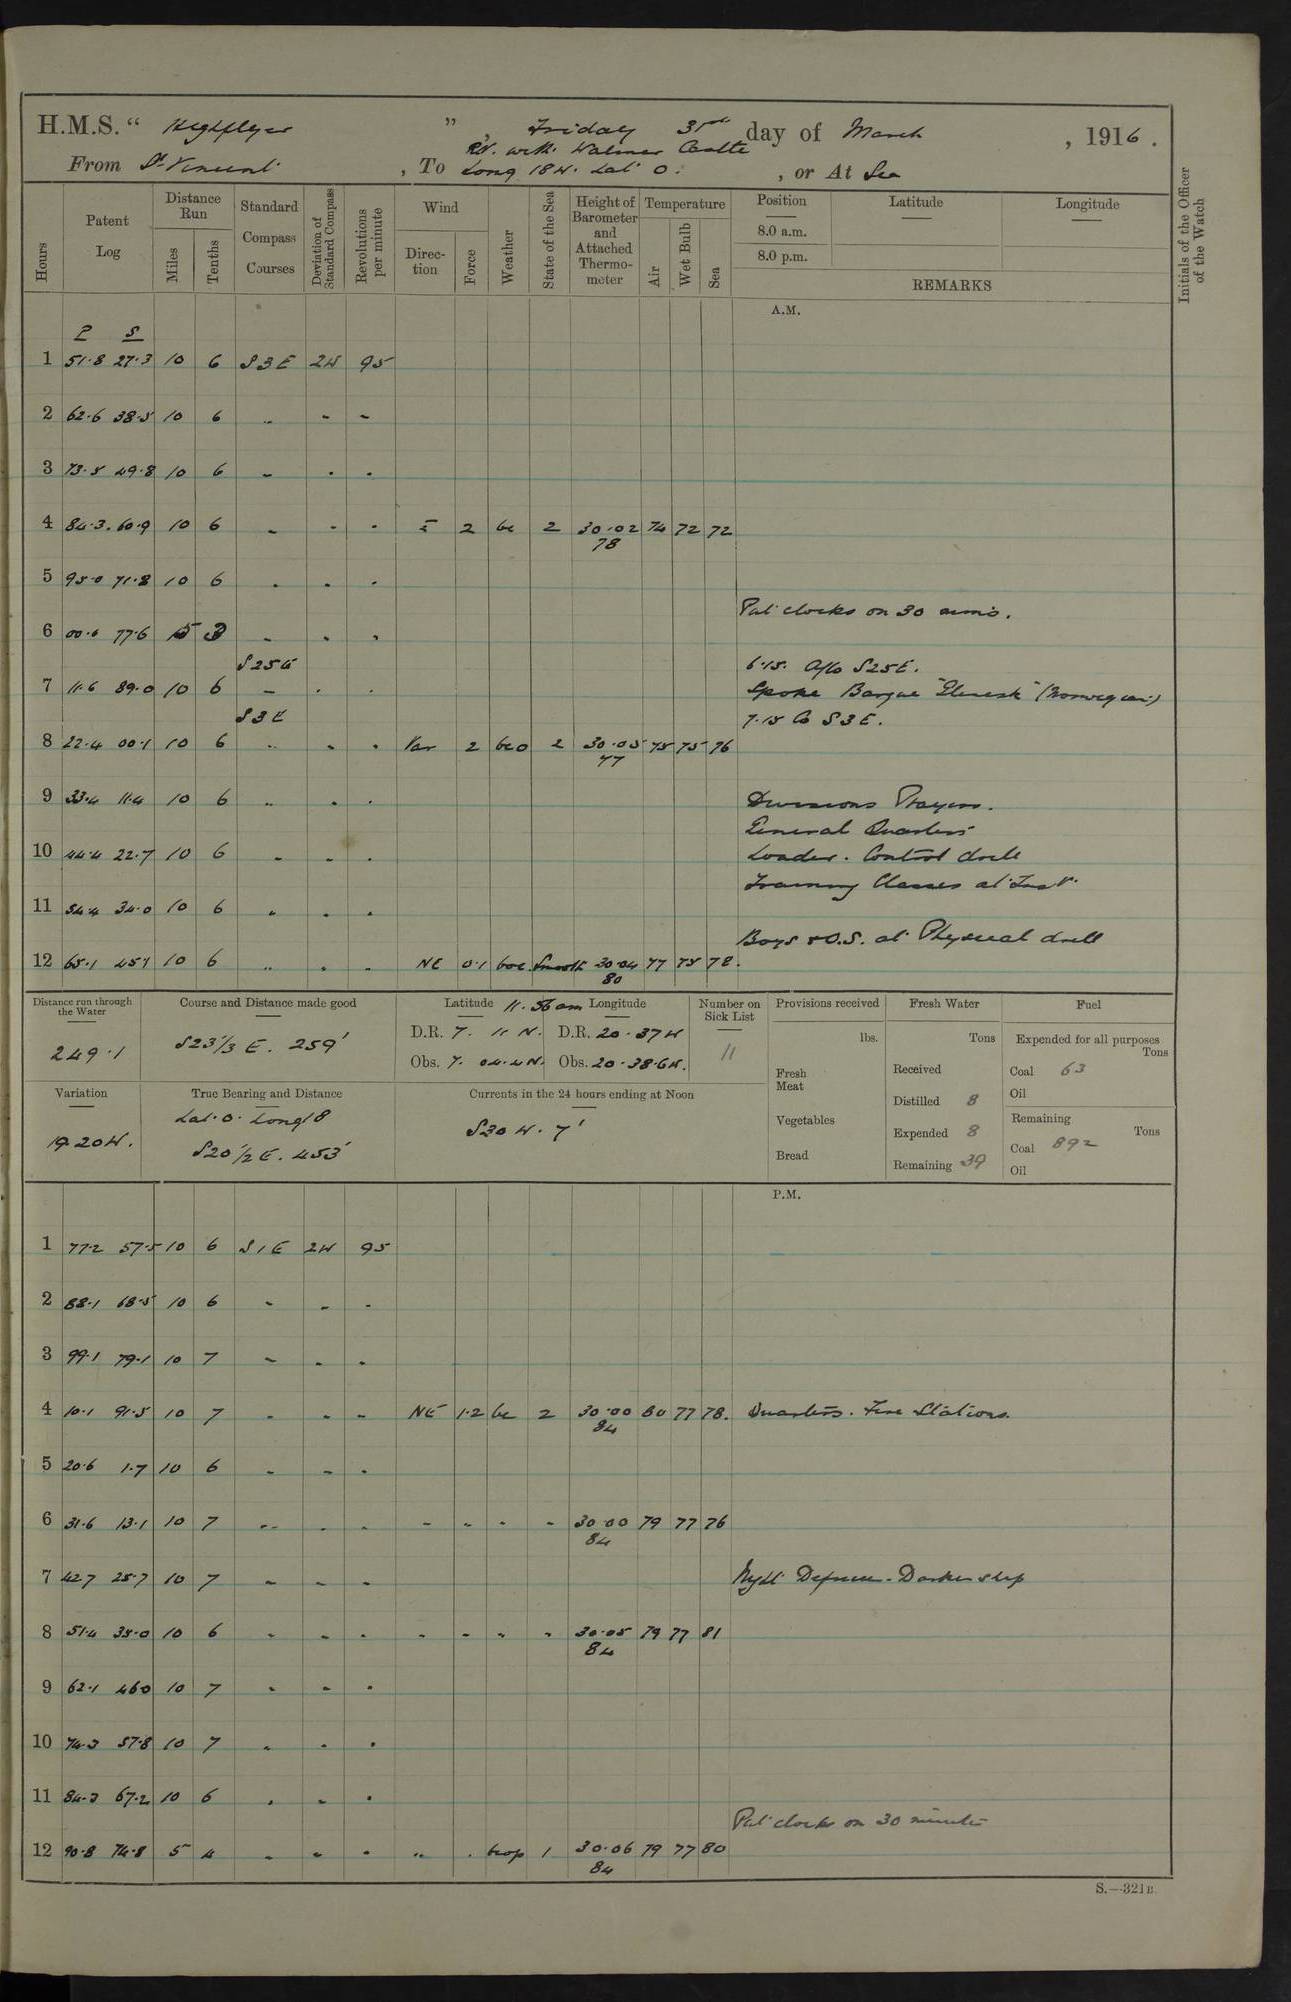 H.M.S. “ Highflyer ” , Friday 31st day of March , 1916 .
R.V. with Walmer Castle
From St Vincent , To Long 18 W. Lat 0. , or At Sea
Hours
Patent Log
Distance Run
Miles
Tenths
Standard Compass Courses
Deviation of Standard Compass
Revolutions per minute
Wind
Direction
Force
Weather
State of the Sea
Height of Barometer and Attached Thermometer
Temperature
Air
Wet Bulb
Sea
Position
8.0 a.m.
8.0 p.m.
Latitude
Longitude
REMARKS
Initials of the Officer of the Watch
A.M.
P S
1 51.8 27.3 10 6 S3E 2W 95
2 62.6 38.5 10 6 " " "
3 73.5 49.8 10 6 " " "
4 84.3 60.9 10 6 " " " E 2 bc 2 30.02 74 72 72
78
5 95.0 71.8 10 6 " " "
Put clocks on 30 mins.
6 00.6 77.6 5 3 " " "
S25E 6.15. A/co S25E.
7 11.6 89.0 10 6 " " " Spoke Barque (Norwegian)
S3E 7.15 Co S3E.
8 22.4 00.1 10 6 " " " Var 2 bco 2 30.05 75 75 76
77
9 33.4 11.4 10 6 " " " Divisions Prayers.
General Quarters
10 44.4 22.7 10 6 " " " Loader. Control drill
Training Classes at Inst.
11 54.4 34.0 10 6 " " "
Boys & O.S. at Physical drill
12 65.1 45.1 10 6 " " " NE 0.1 boc Smooth 30.04 77 75 78.
80
Distance run through the Water
249.1
Course and Distance made good
S23 1/3 E. 259'
Latitude 11.56 am Longitude
D.R. 7. 11 N. D.R. 20.37 W
Obs. 7. 04.4 N. Obs. 20.38.6 W.
Number on Sick List
11
Provisions received
lbs.
Fresh Meat
Vegetables
Bread
Fresh Water
Tons
Received
Distilled 8
Expended 8
Remaining 39
Fuel
Expended for all purposes
Tons
Coal 63
Oil
Remaining
Tons
Coal 892
Oil
Variation
19.20 W.
True Bearing and Distance
Lat. 0. Long 18
S20 1/2 E. 453'
Currents in the 24 hours ending at Noon
S30 W. 7'
P.M.
1 77.2 57.5 10 6 S1E 2W 95
2 88.1 68.5 10 6 " " "
3 99.1 79.1 10 7 " " "
4 10.1 91.5 10 7 " " " NE 1.2 bc 2 30.00 80 77 78. Quarters. Fire Stations.
84
5 20.6 1.7 10 6 " " "
6 31.6 13.1 10 7 " " " " " " " 30.00 79 77 76
84
7 42.7 25.7 10 7 " " " Night Defence. Darken ship
8 51.4 35.0 10 6 " " " " " " " 30.05 79 77 81
84
9 62.1 46.0 10 7 " " "
10 74.3 57.8 10 7 " " "
11 84.3 67.2 10 6 " " "
Put clocks on 30 minutes
12 90.8 74.8 5 4 " " " " " bcop 1 30.06 79 77 80
84
S.—321B.